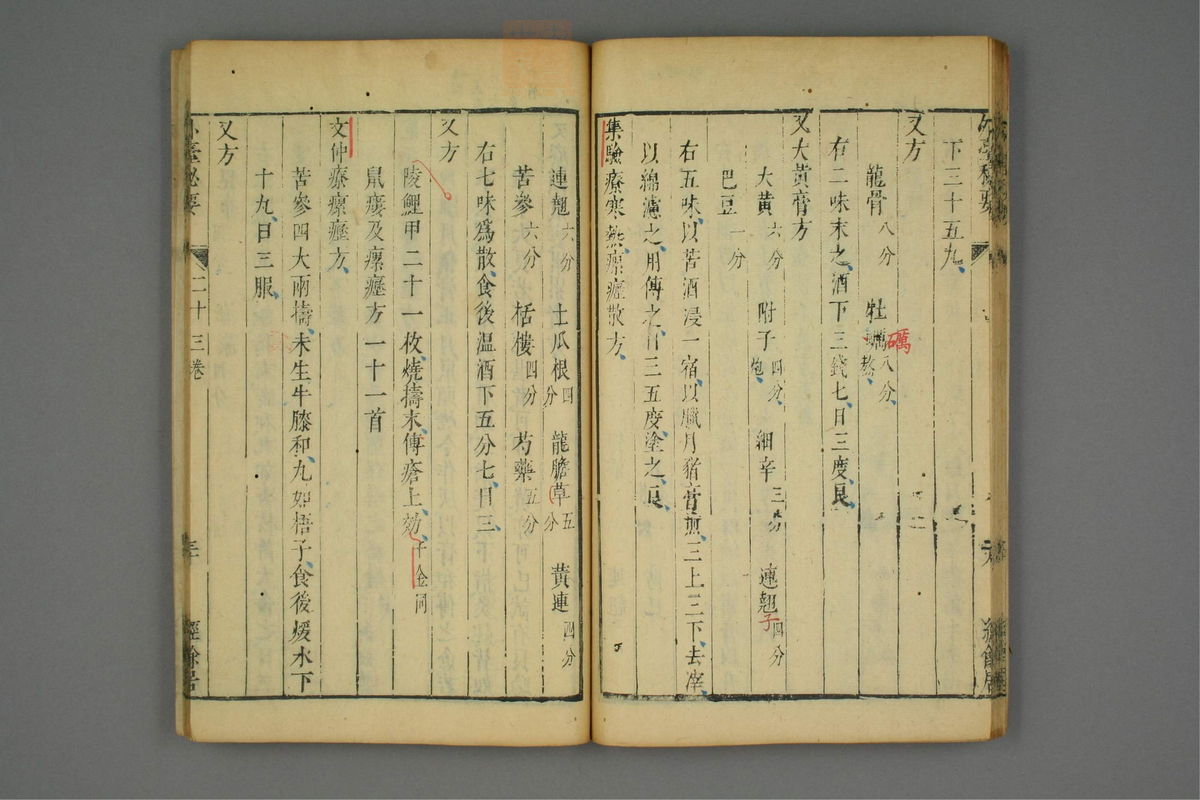 下三十五丸
又方
龍骨八分 牡蠣八分熬
礪
右二味末之酒下三錢七日三度良
又大黄膏方
大黄六分 附子四分炮 細辛三分 連翹四分
子
巴豆一分
右五味以苦酒浸一宿以臘月猪膏煎三上三下去滓
以綿濾之用傅之日三五度塗之良
集驗療寒熱瘰癧散方
連翹六分 土瓜根四分 龍膽草五分 黄連四分
苦參六分 栝樓四分 芍藥五分
右七味爲散食後温酒下五分七日三
又方
陵鯉甲二十一枚燒擣末傅瘡上効千金同
鼠瘻及瘰癧方一十一首
文仲療瘰癧方
苦參四大兩擣末生牛膝和丸如梧子食後煖水下
十丸日三服
又方
外臺秘要 二十三卷 經餘居